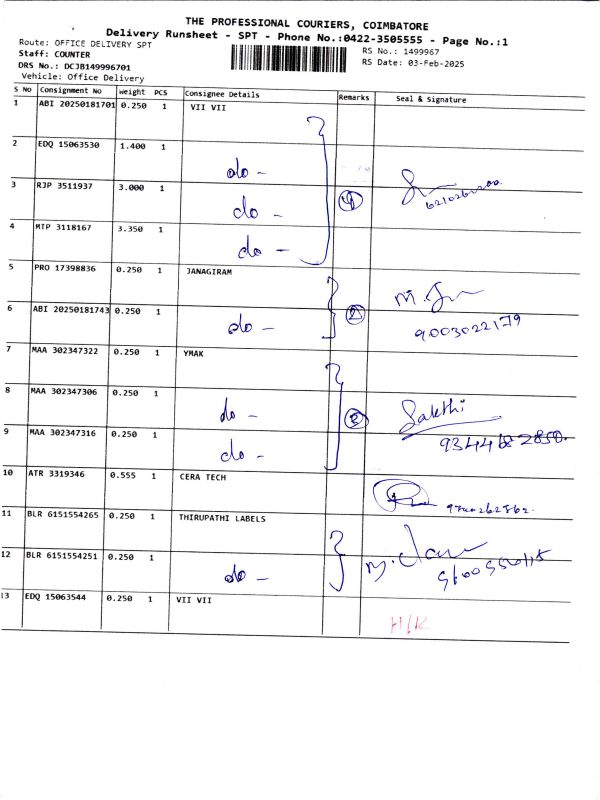 THE PROFESSIONAL COURIERS, COIMBATORE
Delivery Runsheet - SPT - Phone No.:0422-3505555 - Page No.:1
Route: OFFICE DELIVERY SPT
RS No.: 1499967
Staff: COUNTER
RS Date: 03-Feb-2025
DRS No.: DCJB149996701
Vehicle: Office Delivery
S No Consignment No Weight PCS Consignee Details Remarks Seal & Signature
1 ABI 20250181701 0.250 1 VII VII
2 EDQ 15063530 1.400 1 do -
3 RJP 3511937 3.000 1 do - 4
4 MTP 3118167 3.350 1 do -
5 PRO 17398836 0.250 1 JANAGIRAM
6 ABI 20250181743 0.250 1 do - 2 9003022179
7 MAA 302347322 0.250 1 YMAK
8 MAA 302347306 0.250 1 do - 3 Sakthi
9 MAA 302347316 0.250 1 do - 9344682850.
10 ATR 3319346 0.555 1 CERA TECH
11 BLR 6151554265 0.250 1 THIRUPATHI LABELS
12 BLR 6151554251 0.250 1 do -
13 EDQ 15063544 0.250 1 VII VII H/K